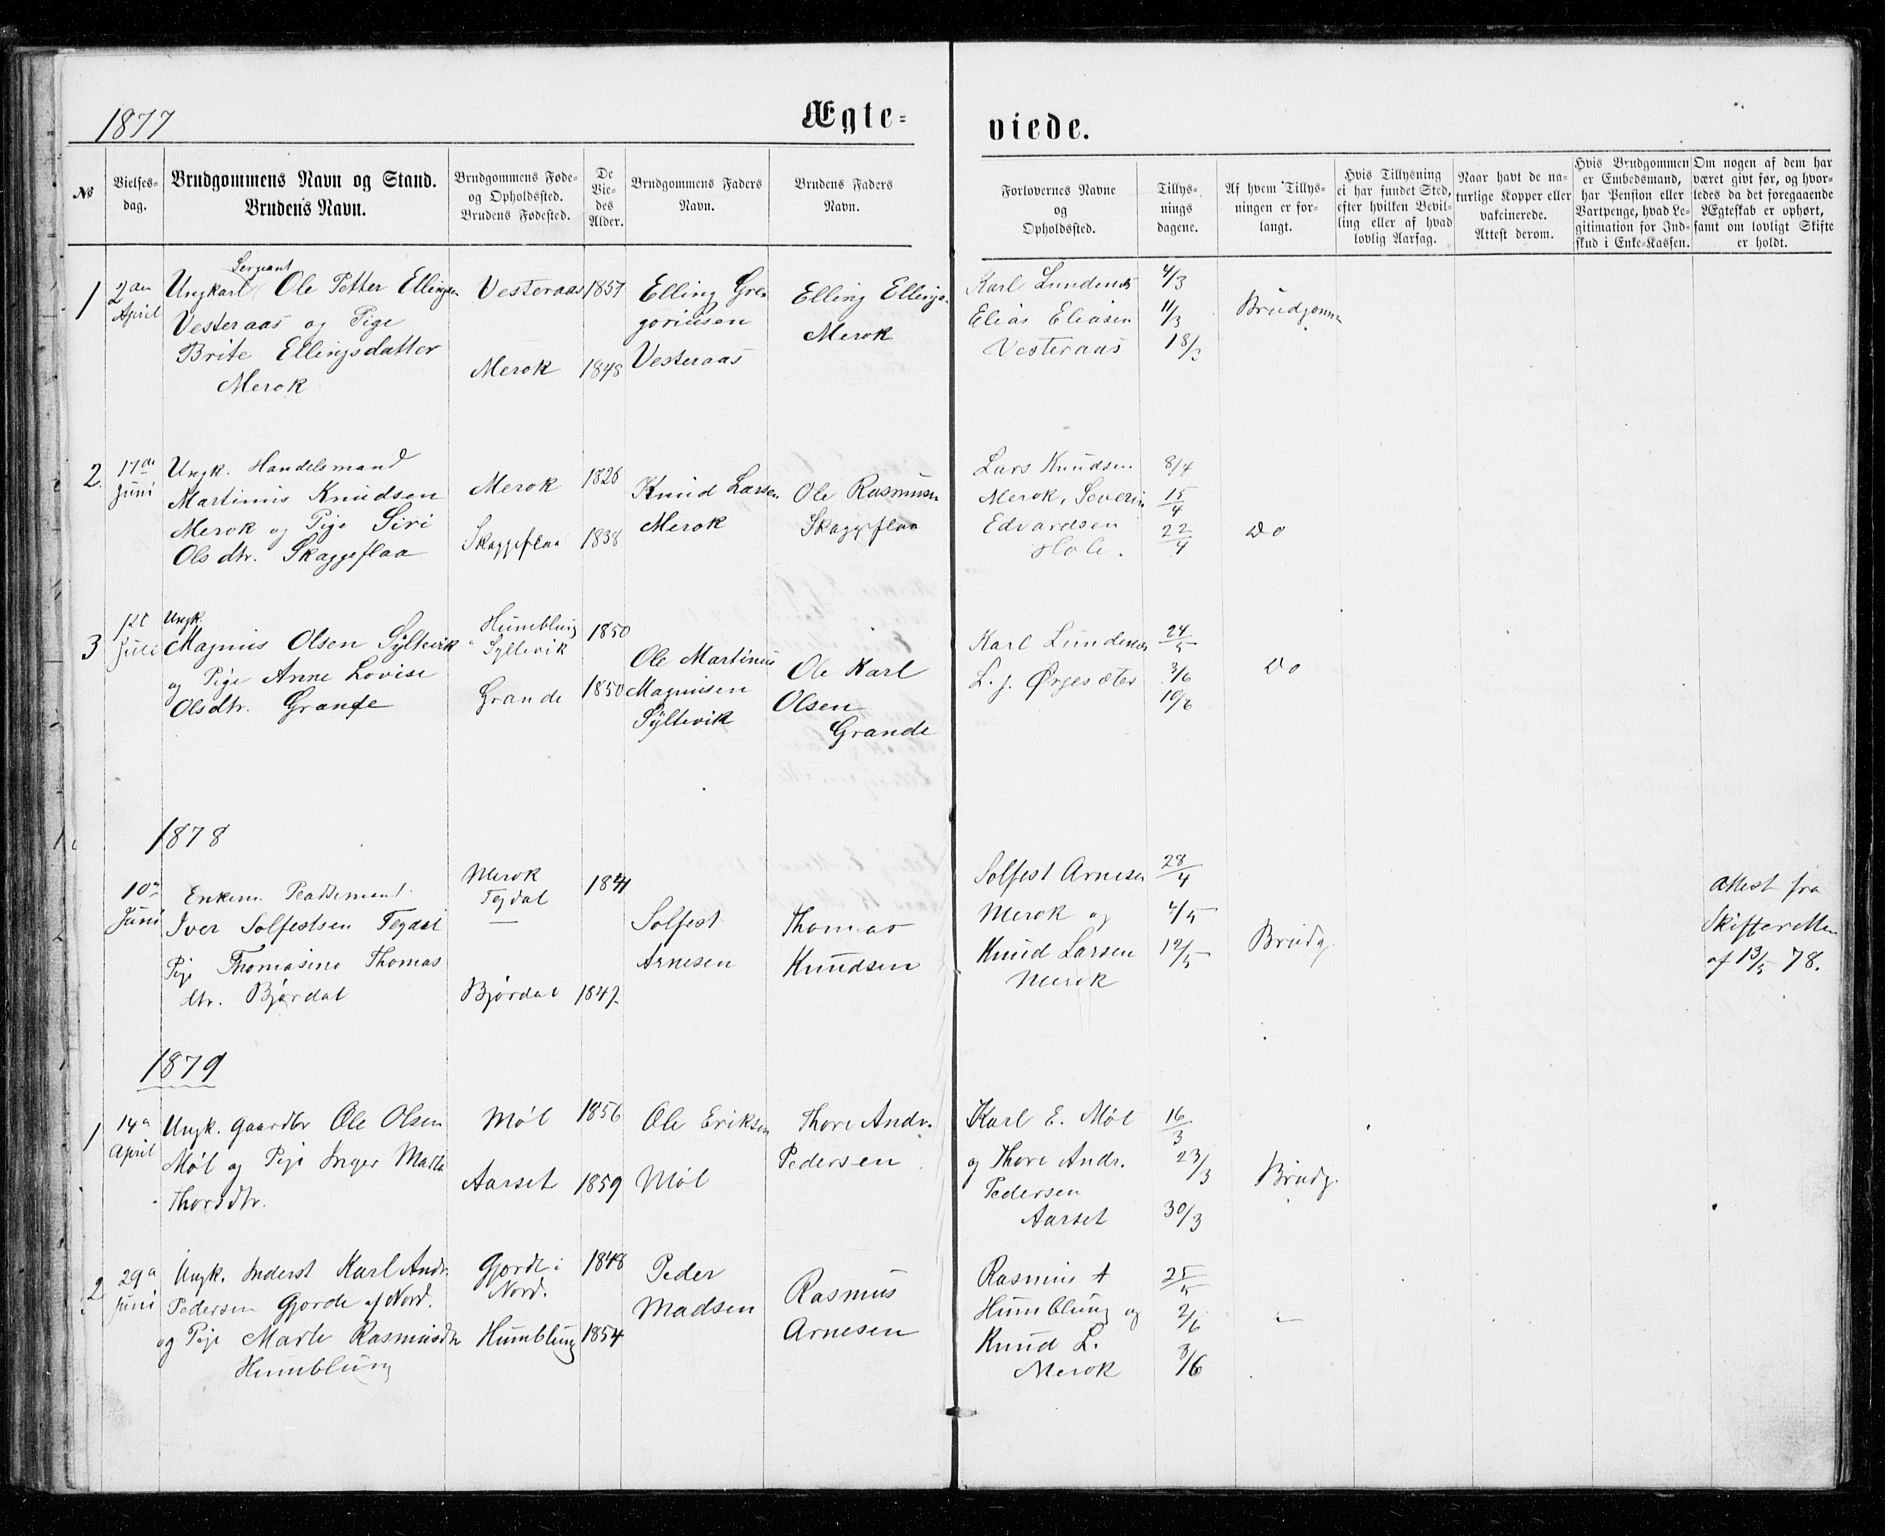 1877
Ægte-
viede.
№
Vielses-
dag.
Brudgommens Navn og Stand.
Brudens Navn.
Brudgommens Føde-
og Opholdssted.
Brudens Fødested.
De
Vie-
des
Alder.
Brudgommens Faders
Navn.
Brudens Faders
Navn.
Forlovernes Navne
og
Opholdssted.
Tillys-
nings
dagene.
Af hvem Tillys-
ningen er for-
langt.
Hvis Tillysning
ei har fundet Sted,
efter hvilken Bevil-
ling eller af hvad
lovlig Aarsag.
Naar havt de na-
turlige Kopper eller
vakcinerede.
Attest derom.
Hvis Brudgommen
er Embedsmand,
har Pension eller
Vartpenge, hvad Le-
gitimation for Ind-
skud i Enke-Kassen.
Om nogen af dem har
været givt før, og hvor-
ledes da det foregaaende
Ægteskab er ophørt,
samt om lovligt Skifte
er holdt.
1
2den
April
Sergeant
Ungkarl Ole Petter Ellingsen
Vesteraas og Pige
Brite Ellingsdatter
Merok
Vesteraas
Merok
1848
Elling Gre
goriusen
Vesteraas
Elling Ellings
Merok
Karl Lundenes
Elias Eliasen
Vesteraas
4/3
11/3
18/3
Brudgommen
2
17de
Juni
Ungk. Handelsmand
Martinus Knudsen
Merok og Pige Siri
Olsdtr. Skageflaa
Merok
Skageflaa
1826
1838
Knud Larsen
Merok
Ole Rasmusen
Skageflaa
Lars Knudsen
Merok, Severin
Edvardsen
Hole.
8/4
15/4
22/4
Do
3
Juli
Ungk.
Magnus Olsen Syltevik
og Pige Anne Lovise
Olsdtr. Grande
Humblung
Syltevik
Grande
1850
1850
Ole Martinus
Magnusen
Syltevik
Ole Karl
Olsen
Grande
Karl Lundenes
L. J. Ørjesæter
24/5
3/6
10/6
Do
1878
10de
Juni
Enkem.
Iver Solfestsen Tegdal
Pige Thomasine Thomas
dtr. Bjørdal
Merok
Tegdal
Bjørdal
Solfest
Arnesen
Thomas
Knudsen
Solfest Arnesen
Merok og
Knud Larsen
Merok
28/4
12/5
Brudg.
Attest fra
Skifteretten
af 13/5 78.
1879
1
14a
April
Ungk. Gaardbr Ole Olsen
Møl og Pige Inger Marte
Thorsdtr.
Møl
Aarset
1856
1859
Ole Eriksen
Møl
Thore Andr.
Pedersen
Karl E. Møl
og Thore Andr.
Pedersen
Aarset
16/3
23/3
30/3
Brudg.
2
29a
Juni
Ungk. Inderst Karl Andr.
Pedersen Gjorde af Nord.
og Pige Marte Rasmusdtr
Humblung
Gjorde i
Nord.
Humblung
1848
1854
Peder
Madsen
Rasmus
Arnesen
Rasmus A
Humblung og
Knud L.
Merok
25/5
2/6
8/6